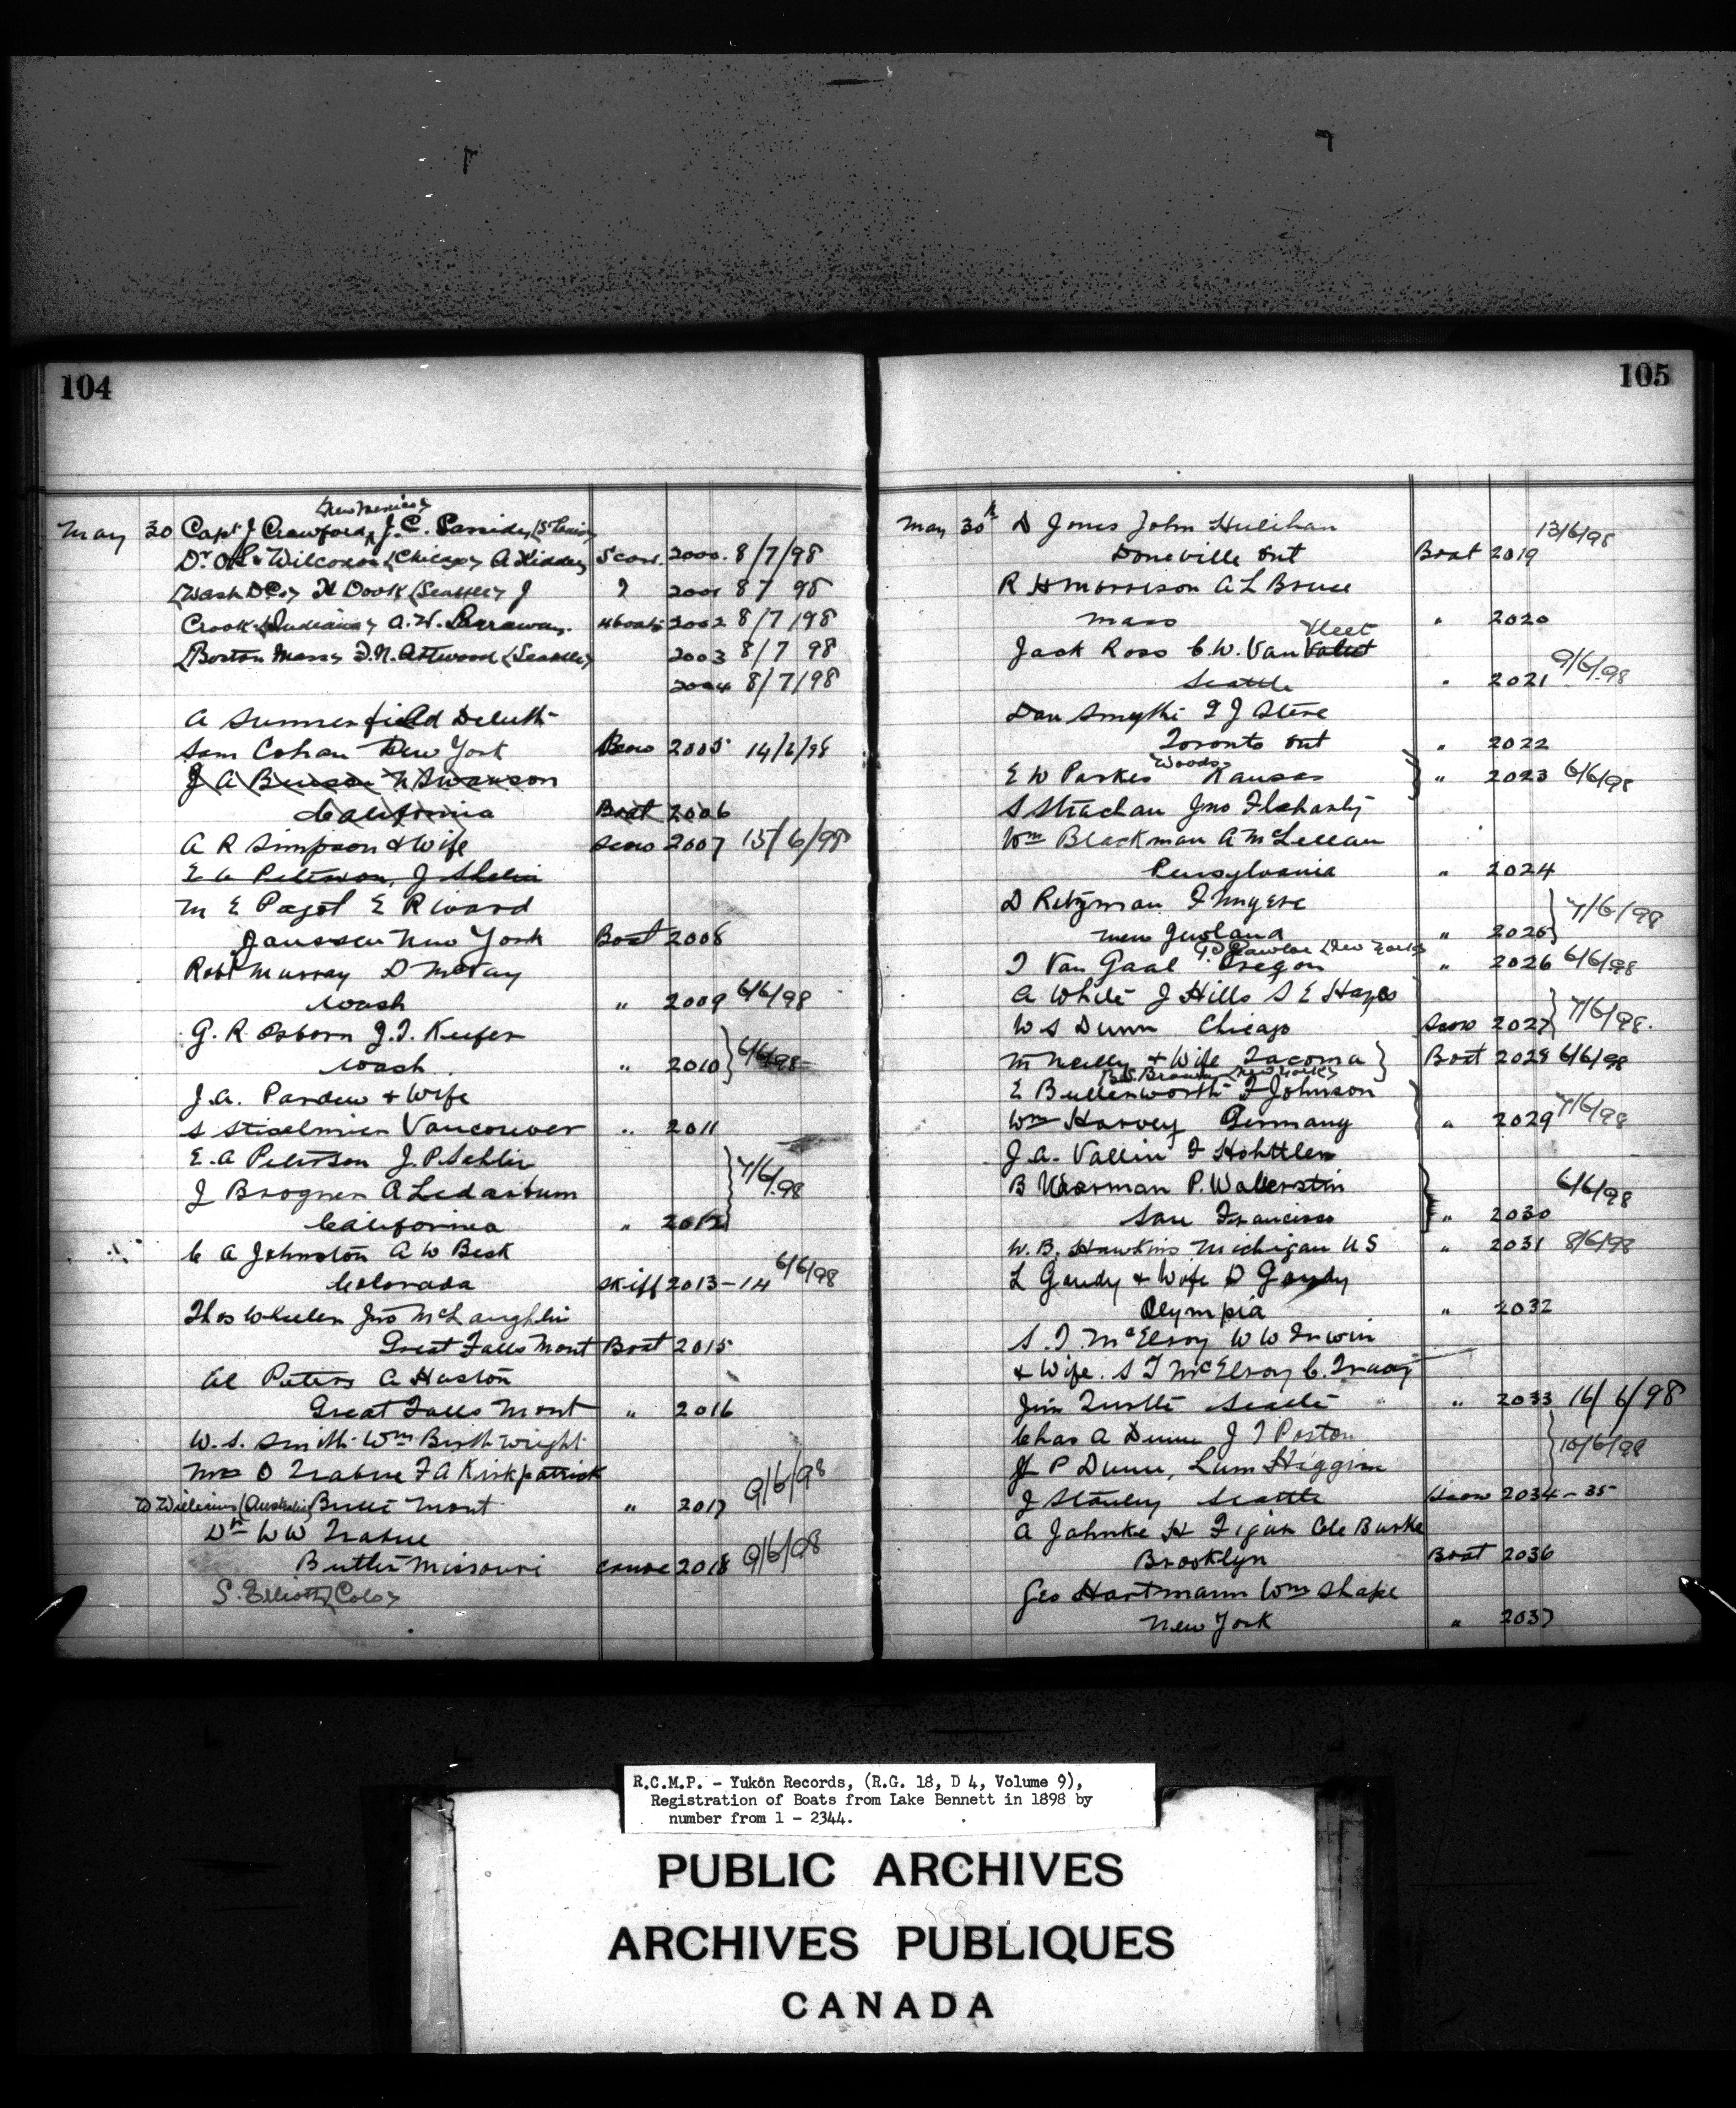 104
New Mexico
May 30 Capt J Crawford, J. C. Cassidy (St Louis)
Dr O.L. Wilcoxon (Chicago) A Hidden Scow. 2000. 8/7/98
(Wash DC) H Dook (Seattle) J 2001 8 7 98
Crook (Indiana) A.W. 4 boats 2002 8/7/98
(Boston Mass) F.N. Attwood (Seattle) 2003 8/7 98
2004 8/7/98
A Summerfield Deluth
Sam Cohan New York Scow 2005 14/6/98
J A Benson N Swanson
California Boat 2006
A R Simpson & Wife Scow 2007 15/6/98
E A Peterson, J Shelin
M E Paget E Rivard
Janssen New York Boat 2008
Robt Murray D McKay
Wash " 2009 6/6/98
G. R. Osborn J. T. Keefer
Wash. " 2010 6/6/98
J. A. Pardew & Wife
S Vancouver " 2011
E. A Peterson J. P. Sahlin
J Brogner A Ledarbum 7/6/98
California " 2012
C A Johnston A W Beck
Colorada Skiff 2013-14 6/6/98
Thos Wheeler Jno McLaughlin
Great Falls Mont Boat 2015
Al Peters A Huston
Great Falls Mont " 2016
W. S. Smith Wm Birthwright
Mrs O Trabue F A Kirkpatrick
W Williams (Australia) Butte Mont " 2017 9/6/98
Dr W W Trabue
Butler Missouri Canoe 2018 9/6/98
S. Elliott (Colo)
105
May 30th D Jones John Hulihan 13/6/98
Doneville Ont Boat 2019
R H Morrison A L Bruce
Mass " 2020
Vleet
Jack Ross C. W. Van
Seattle " 2021 9/6/98
Dan Smythe F J Steve
Toronto Ont " 2022
Woods
E W Parkes Kansas " 2023 6/6/98
S Strachan Jno Flaharty
Wm Blackman A McLellan
Pensylvania " 2024
D Ritzman F Myere 7/6/98
New Jersland " 2025
P Lawlor (New York)
T Van Gaal Oregon " 2026 6/6/98
A White J Hills S E Hayes
W S Dunn Chicago Scow 2027 7/6/98.
M Neilly & Wife Tacoma Boat 2028 6/6/98
Brown (New York)
E Bullenworth F Johnson
Wm Harvey Germany " 2029 7/6/98
J. A. Vallin F Hohttler
B Waarman P. Wallerstin 6/6/98
San Francisco " 2030
W. B. Hawkins Michigan US " 2031 8/6/98
L Gandy & Wife D Gandy
Olympia " 2032
S. T. McElroy W W Irwin
& Wife. S T McElroy C. Tracy
Jim Turtle Seattle " 2033 16/6/98
Chas A Dunn J T Porton
J P Dunn, Lum Higgins 10/6/98
J Stanley Seattle Scow 2034-35
A Jahnke H Figun Cle Burke
Brooklyn Boat 2036
Geo Hartmann Wm Shape
New York " 2037
R.C.M.P. - Yukon Records, (R.G. 18, D 4, Volume 9),
Registration of Boats from Lake Bennett in 1898 by
number from 1 - 2344.
PUBLIC ARCHIVES
ARCHIVES PUBLIQUES
CANADA